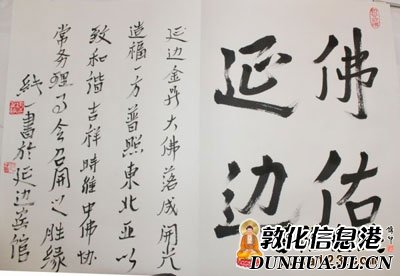 佛佑
延边
延边金鼎大佛落成开光
造福一方普照东北亚以
致和谐吉祥時維中佛协
常务理事会召开之胜缘
純一書於延边宾馆
敦化信息港
DUNHUA.JL.CN